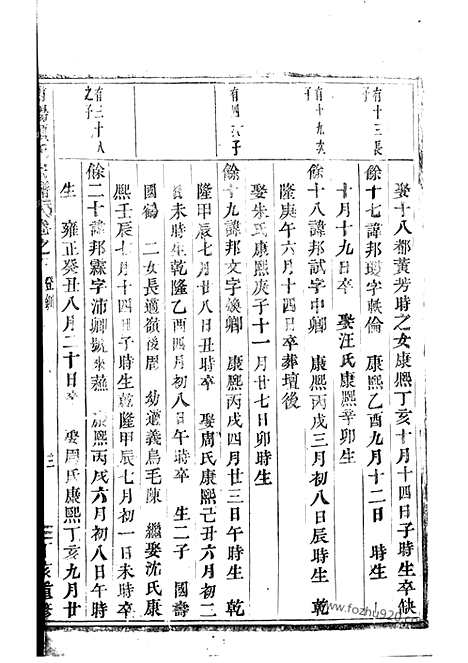 有十三長子
娶十八都黃芳時之女康熙丁亥十月十四日子時生卒缺
餘十七諱邦瓊字軼倫 康熙乙酉九月十二日 時生
十月十九日卒 娶汪氏康熙辛卯生
有十九次子
餘十八諱邦試字中卿 康熙丙戌三月初八日辰時生 乾
隆庚午六月十四日卒葬墳後
娶朱氏康熙庚子十一月廿七日卯時生
有四六子
餘十九諱邦文字煥卿 康熙丙戌四月廿三日午時生 乾
隆甲辰七月廿八日丑時卒 娶周氏康熙己丑六月初二
癸未時生乾隆乙酉四月初八日午時卒 生二子 國壽
國鶴 二女長適嶺後周 幼適義烏毛陳 繼娶沈氏康
熙壬辰七月十四日子時生乾隆甲辰七月初一日未時卒
有三十八之子
餘二十諱邦霖字沛卿號來燕 康熙丙戌六月初八日午時
生 雍正癸丑八月二十日卒 娶周氏康熙丁亥九月廿
宗譜 卷之
三
丁亥重修
www.fozhu920.com